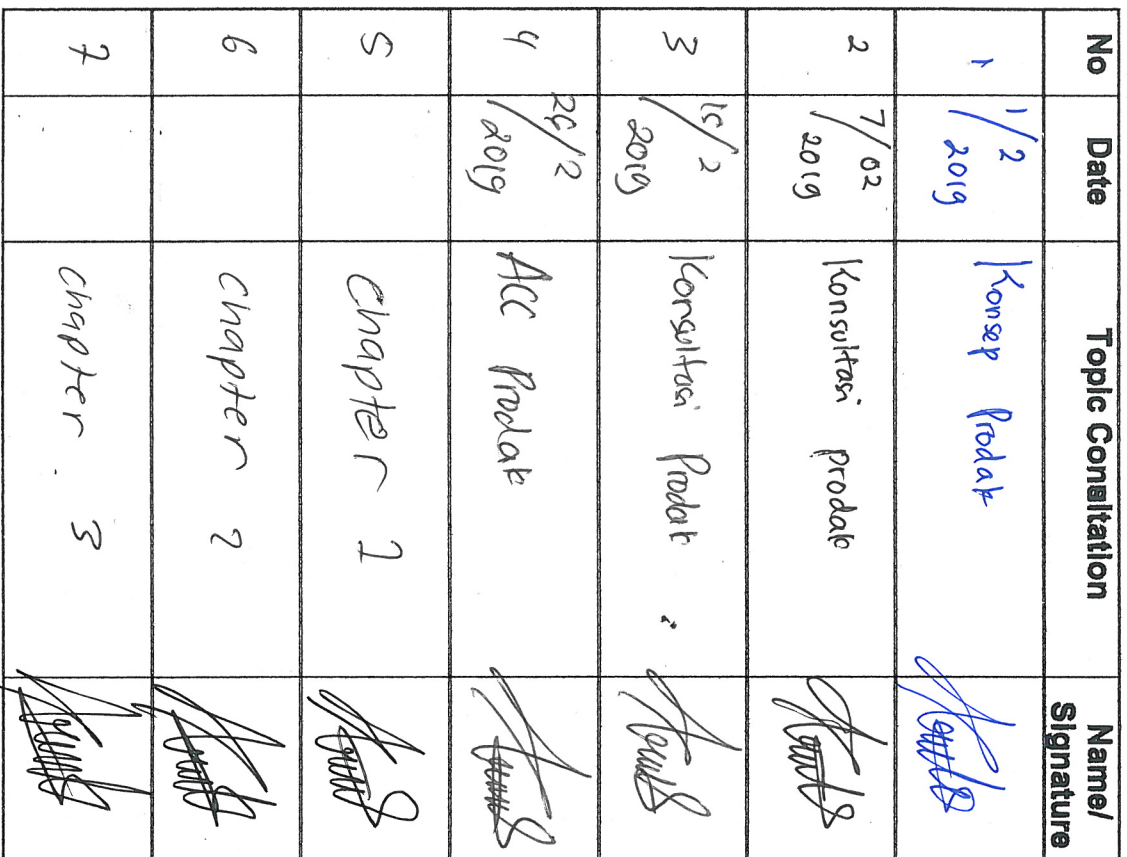 No Date Topic Consltation Name/ Signature
1 1/2 2019 Konsep Prodak
2 7/02 2019 Konsultasi prodak
3 15/2 2019 Konsultasi Prodak
4 26/2 2019 ACC Prodak
5 Chapter 1
6 Chapter 2
7 Chapter. 3